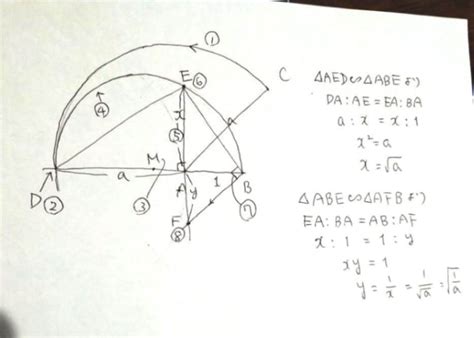 ①
C
E ⑥
④
x
⑤
a
M
D ②
a
③
A
y
1
B
⑦
F
⑧
△AED∽△ABE より
DA:AE=EA:BA
a:x=x:1
x²=a
x=√a
△ABE∽△AFB より
EA:BA=AB:AF
x:1=1:y
xy=1
y=1/x=1/√a=√(1/a)